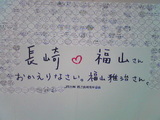 長崎♡福山さん
おかえりなさい。福山雅治さん。